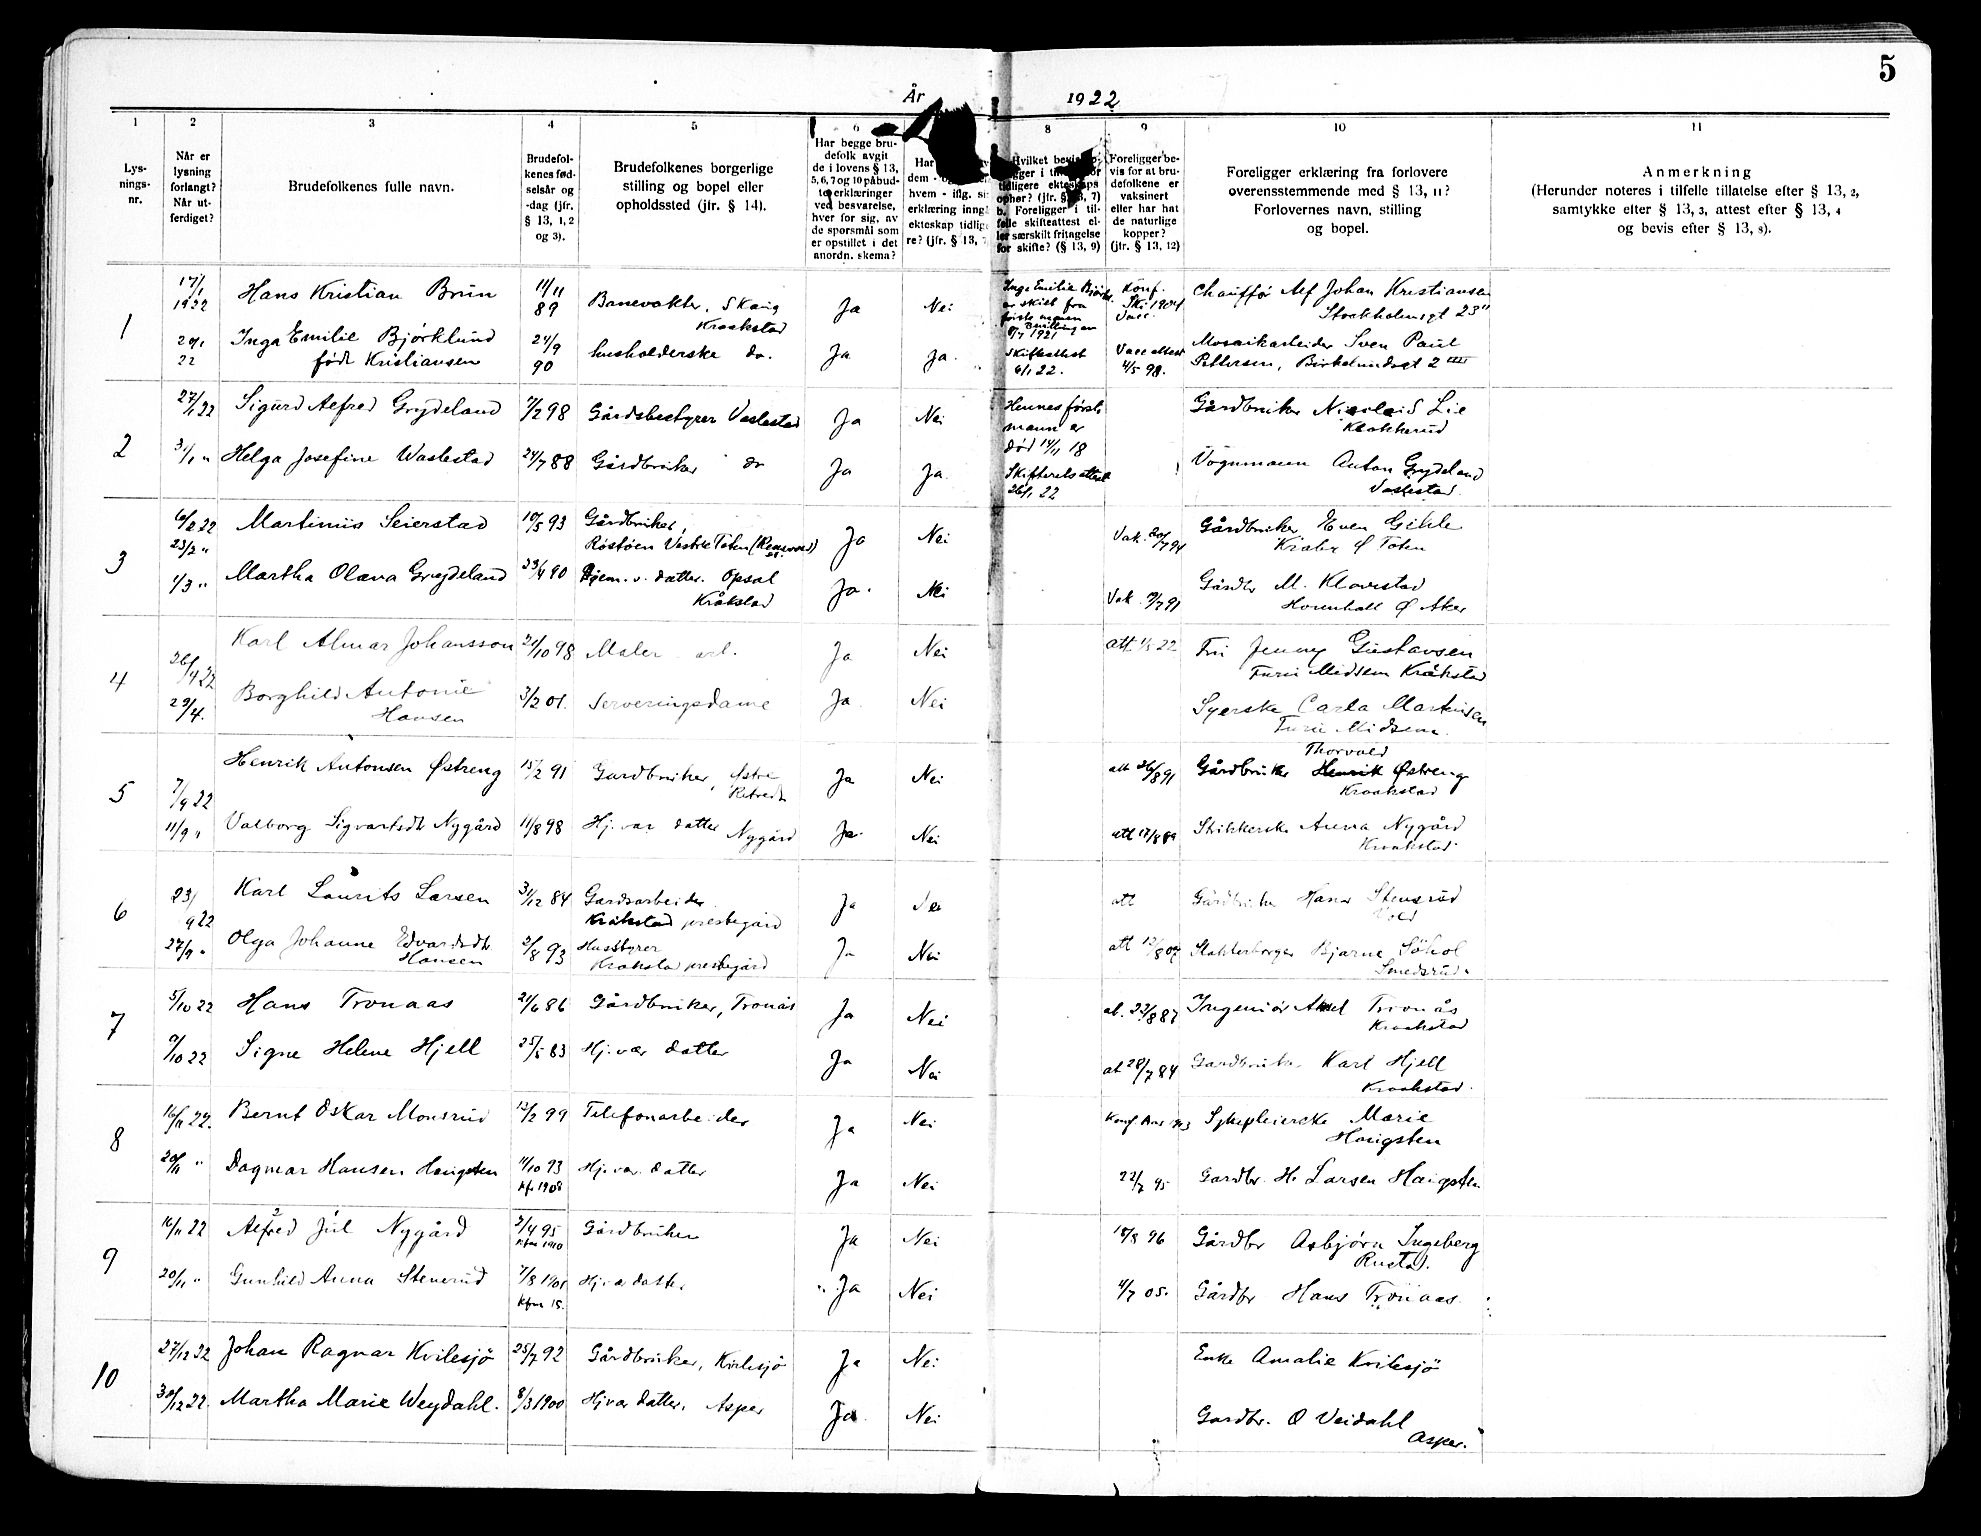 5
År 1922
1 2 3 4 5 6 8 9 10 11
Lys-
nings-
nr.
Når er
lysning
forlangt?
Når ut-
ferdiget?
Brudefolkenes fulle navn.
Brudefol-
kenes fød-
selsår og
-dag (jfr.
§ 13, 1, 2
og 3).
Brudefolkenes borgerlige
stilling og bopel eller
opholdssted (jfr. § 14).
Har begge bru-
defolk avgit
de i lovens § 13,
5, 6, 7 og 10 påbud-
te erklæringer
ved besvarelse,
hver for sig, av
de spørsmål som
er opstillet i det
anordn. skema?
Har
dem
hvem - iflg. si
erklæring inng
ekteskap tidlig
re? (jfr. § 13, 7
Hvilket bevis
tidligere ekteskaps
ophør? (jfr. § 13, 7)
b. Foreligger i til-
felle skifteattest el-
ler særskilt fritagelse
for skifte? (§ 13, 9)
Foreligger be-
vis for at bru-
defolkene er
vaksinert
eller har hat
de naturlige
kopper?
(jfr. § 13, 12)
Foreligger erklæring fra forlovere
overensstemmende med § 13, 11?
Forlovernes navn, stilling
og bopel.
Anmerkning
(Herunder noteres i tilfelle tillatelse efter § 13, 2,
samtykke efter § 13, 3, attest efter § 13, 4
og bevis efter § 13, 8).
1
17/1 1922 Hans Kristian Brun 11/11 89 Banevokter, Skaug Kraakstad Ja Nei
Inge Emilie Bjørkl. er skilt fra første mannen Bevilling av 1921
Konf. Ski 1904 Vacc.
Chauffør Alf Johan Kristiansen Stockholmsgt 23
22 Inga Emilie Bjørklund født Kristiansen 24/9 90 husholderske do. Ja Ja.
Skifteattest 6/1 22. Vacc attest 4/5 98.
Mosaikarbeider Sven Paul Pettersen, Birkelundsgt 2
2
27/1 22 Sigurd Alfred Grydeland 7/2 98 Gårdsbestyrer Vaslestad Ja Nei
Hennes første mann er død 14/11 18
Gårdbruker Nicolai S Lie Klokkerud
31/1 " Helga Josefine Waslestad 24/7 88 Gårdbruker do Ja Ja.
Skifteretsattest 26/1 22
Vognmann Anton Grydeland Vaslestad.
3
6/2 22 Martinius Seierstad 10/5 93 Gårdbruker, Røstøen Vestre Toten Ja Nei
Gårdbruker Even Gihle Kraby Ø Toten
23/2 "
1/3 " Martha Olava Grydeland 23/4 90 Hjem. v. datter. Opsal Kråkstad Ja. Nei
Vak. 9/7 91 Gårdbr M. Klovestad Hovinholt Ø Aker
4
26/4 22 Karl Almar Johansson 21/10 98 Maler Ja Nei att 1/5 22
Fru Jenny Gustavsen Furu Midsem Kråkstad
29/4. Borghild Antonie Hansen 3/2 01. Serveringsdame Ja. Nei
Syerske Carla Martinsen Furu Midsem.
5
7/9 22 Henrik Antonsen Østreng 15/2 91 Gardbruker, Østre Ja Nei att 26/8 91
Thorvald
Gårdbruker Henrik Østreng Kraakstad
11/9 " Valborg Sigvartsdt Nygård 11/8 98 Hj. vær datter Nygård Ja. Nei att 17/8 89
Strikkerske Anna Nygård Kraakstad
6
23/9 22 Karl Laurits Larsen 31/12 84 Gardsarbeider Kråkstad prestegård Ja Nei att
Gårdbruker Hans Stensrud
27/9 " Olga Johanne Edvardsdt. Hansen 2/8 93 Husstyrer Krakstad prestegård Ja Nei att 12/8 07
Bjarne Söhol Smedsrud.
7
5/10 22 Hans Tronaas 21/6 86 Gårdbruker, Tronås Ja Nei at. 23/8 87
Ingeniør Aksel Tronås Kraakstad
9/10 22 Signe Helene Hjell 25/5 83 Hj. vær datter Ja Nei at 28/7 84
Gardbruker Karl Hjell Kraakstad.
8
16/11 22. Bernt Oskar Monsrud 12/2 99 Telefonarbeider Ja Nei
Sykepleierske Marie Haugsten
20/11 " Dagmar Hansen Haugsten 11/10 93 kfm 1908 Hj. vær. datter Ja Nei 22/7 95
Gardbr. H. Larsen Haugsten
9
16/11 22 Alfred Jul Nygård 2/4 95 kfm 1910 Gårdbruker Ja Nei 18/8 96
Gårdbr Asbjørn Ingeberg Rustad.
20/11 " Gunhild Anna Stenerud 7/8 1901 Kfm 15. Hj. vær datter Ja Nei 4/7 05.
Gårdbr Hans Tronaas.
10
27/12 22 Johan Ragnar Kvilesjø 25/7 92 Gårdbruker, Kvilesjø Ja Nei
Enke Amalie Kvilesjö
30/12 22. Martha Marie Weydahl. 8/3 1900 Hj vær datter, Asper Ja. Nei
Gardbr. O Veidahl Asper.